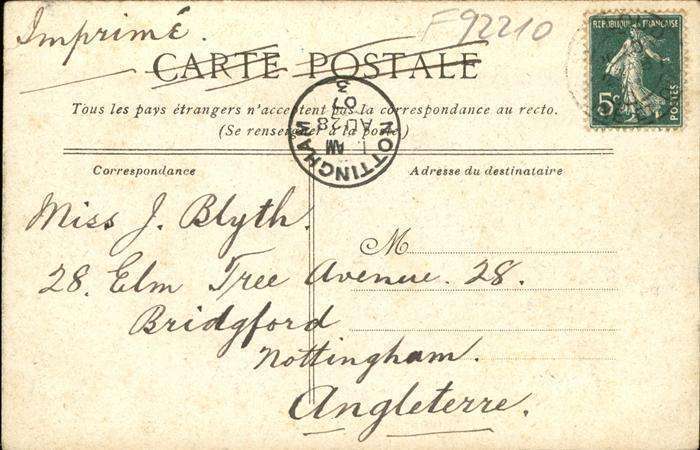 Imprimé. F92210
REPUBLIQUE FRANÇAISE
5c
POSTES
CARTE POSTALE
Tous les pays étrangers n'acceptent pas la correspondance au recto.
(Se renseigner à la poste.)
NOTTINGHAM
AM
AU 28
07
3
Correspondance
Adresse du destinataire
Miss J. Blyth.
M
28. Elm Tree Avenue. 28.
Bridgford
Nottingham.
Angleterre.